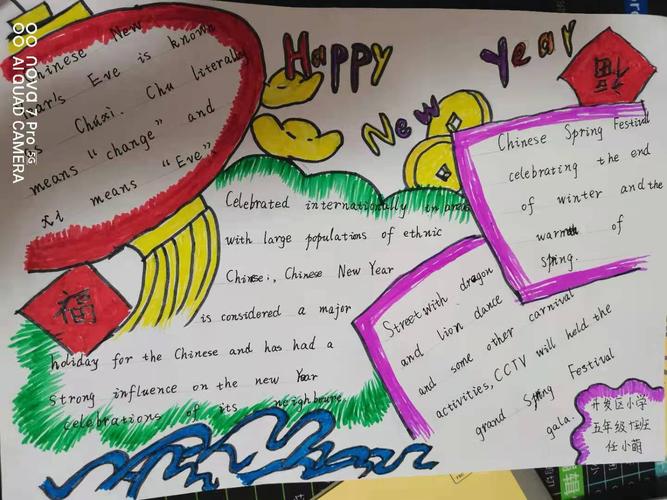 Happy New Year
Chinese New
Year's Eve is known
as Chúxì. Chu literally
means "change" and
xi means "Eve".
福
福
Chinese Spring Festival
celebrating the end
of winter and the
warmth of
spring.
Celebrated internationally in areas
with large populations of ethnic
Chinese, Chinese New Year
is considered a major
holiday for the Chinese and has had a
strong influence on the new Year
celebrations of its neighbours.
Street with dragon
and lion dance
and some other carnival
activities, CCTV will hold the
grand Spring Festival
gala.
开发区小学
五年级
任小萌
nova 7 Pro 5G
AI QUAD CAMERA